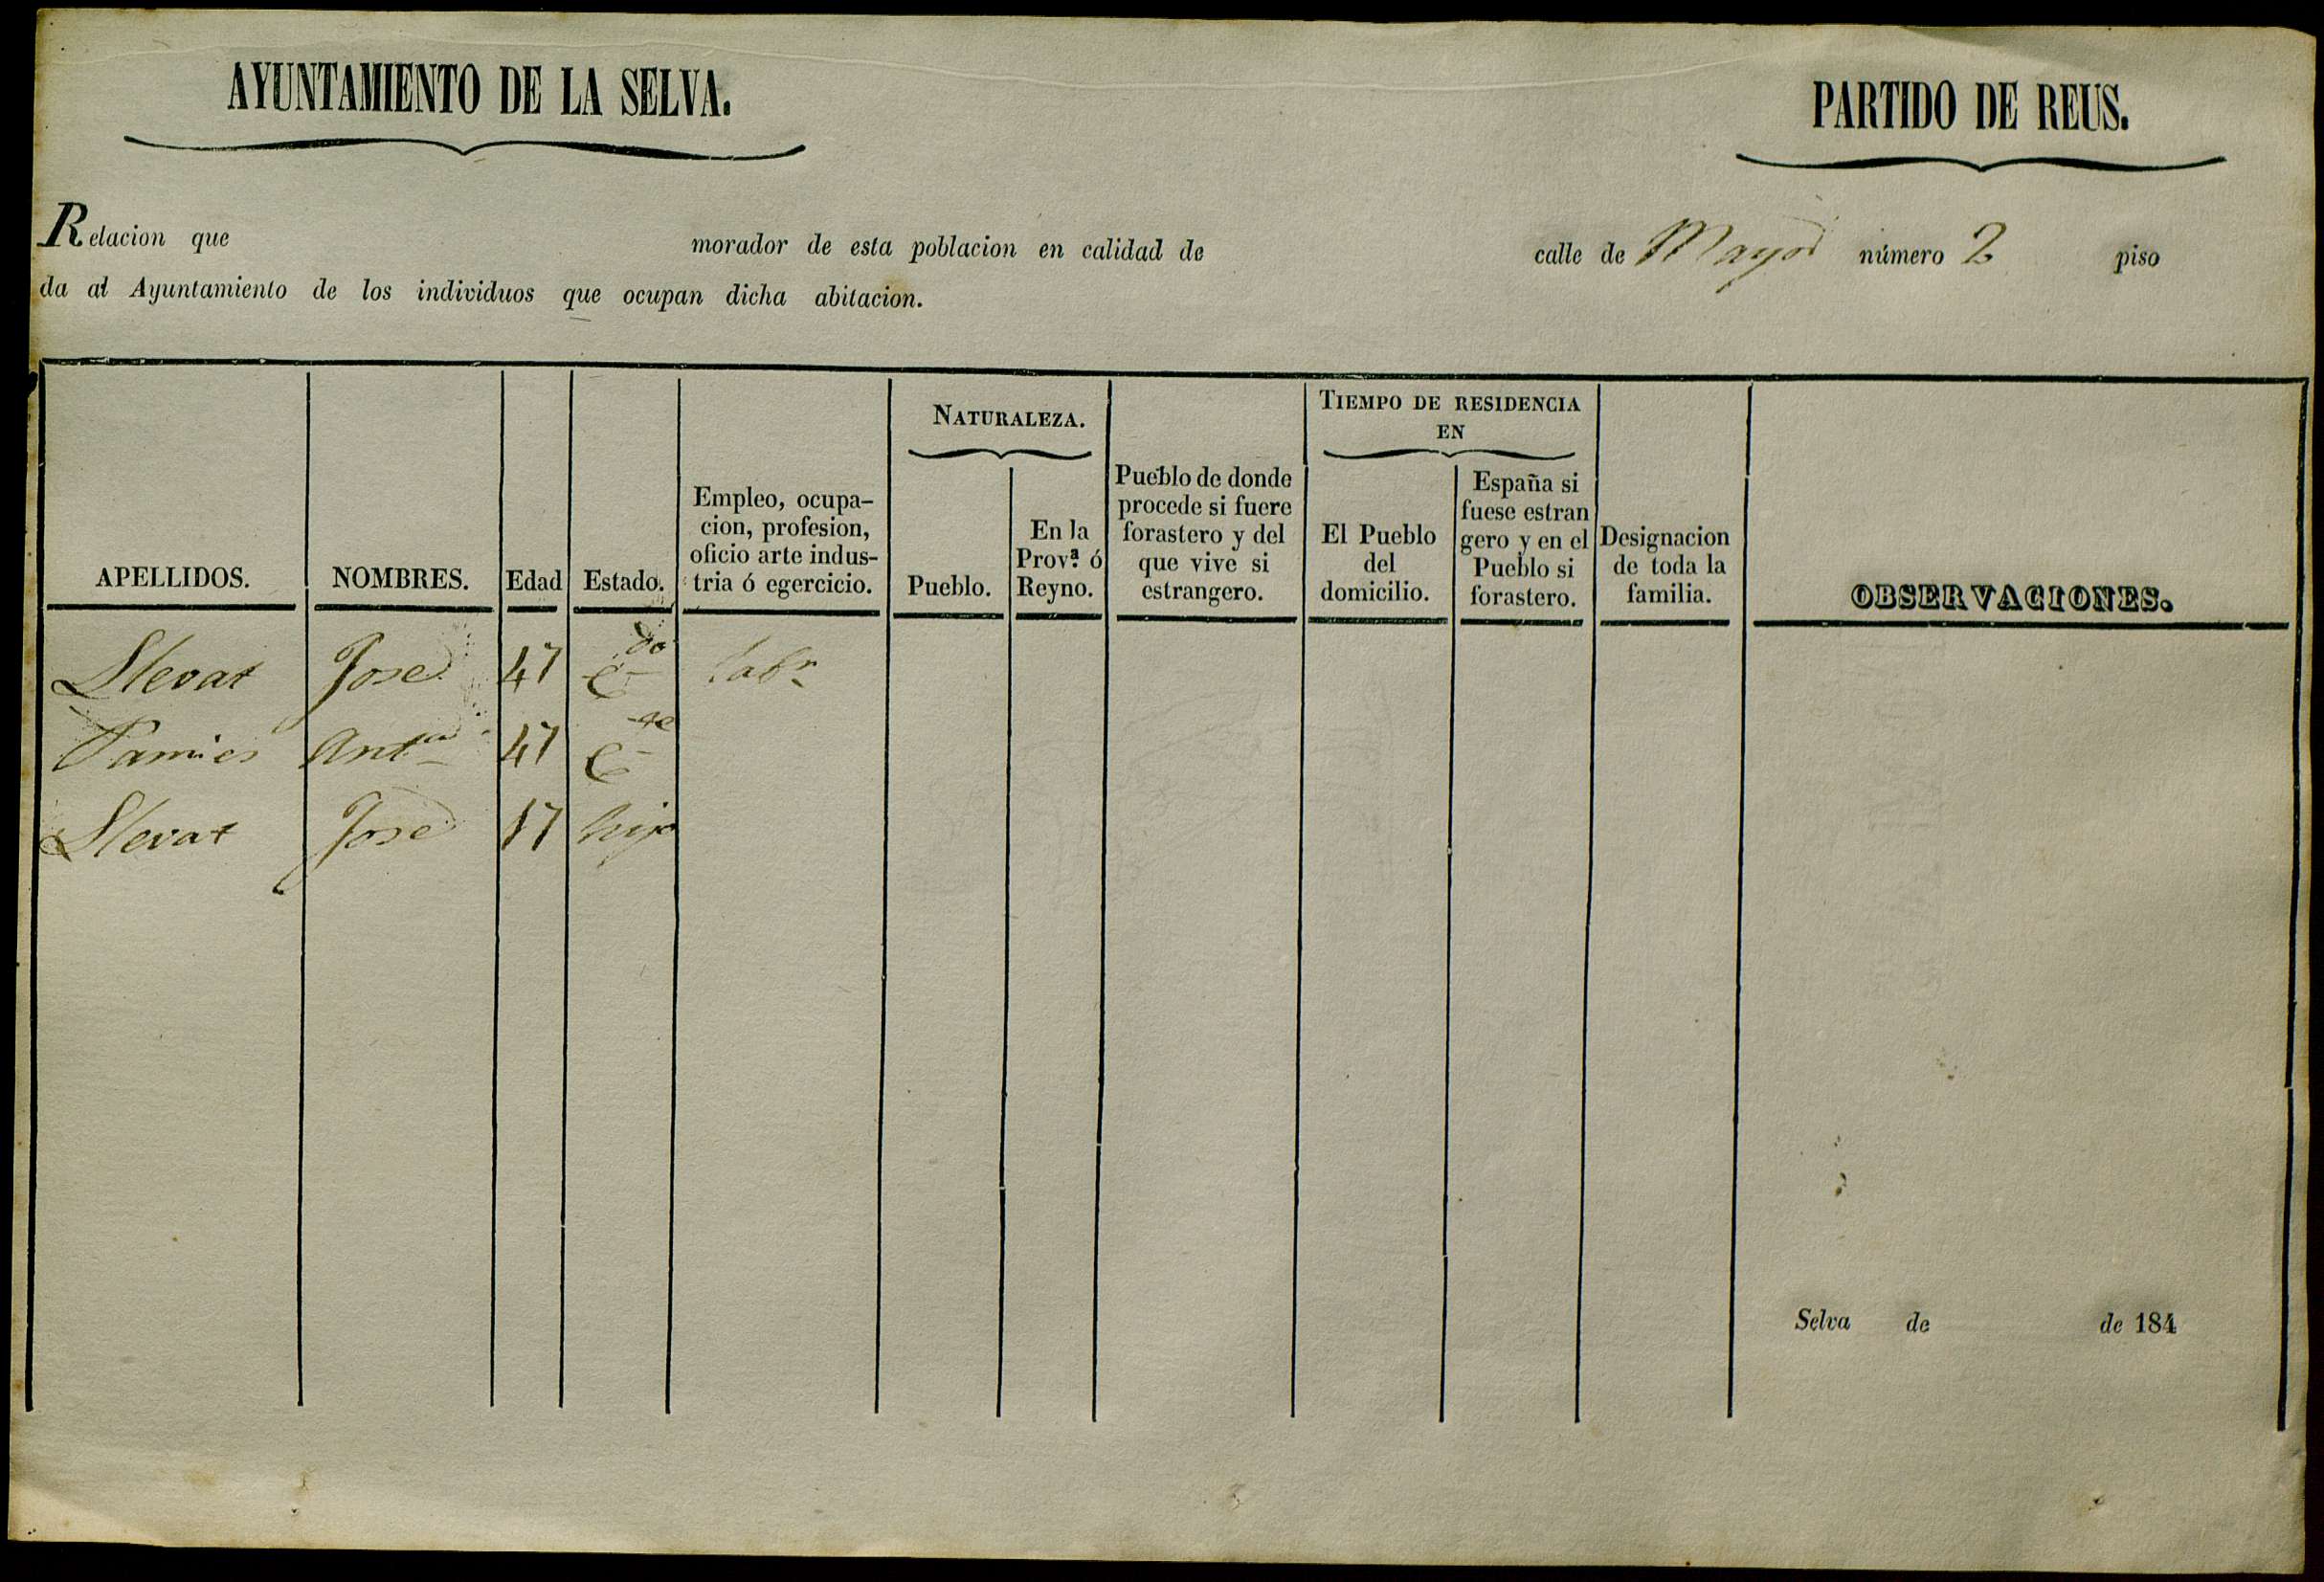 AYUNTAMIENTO DE LA SELVA.
PARTIDO DE REUS.
Relacion que morador de esta poblacion en calidad de calle de Mayor número 2 piso
da al Ayuntamiento de los individuos que ocupan dicha abitacion.
APELLIDOS.
NOMBRES.
Edad
Estado.
Empleo, ocupa-
cion, profesion,
oficio arte indus-
tria ó egercicio.
NATURALEZA.
Pueblo.
En la
Prov.ª ó
Reyno.
Pueblo de donde
procede si fuere
forastero y del
que vive si
estrangero.
TIEMPO DE RESIDENCIA
EN
El Pueblo
del
domicilio.
España si
fuese estran
gero y en el
Pueblo si
forastero.
Designacion
de toda la
familia.
OBSERVACIONES.
Llevat Jose 47 C.do labr
Pamies Anta 47 C.
Llevat Jose 17 hijo
Selva de de 184